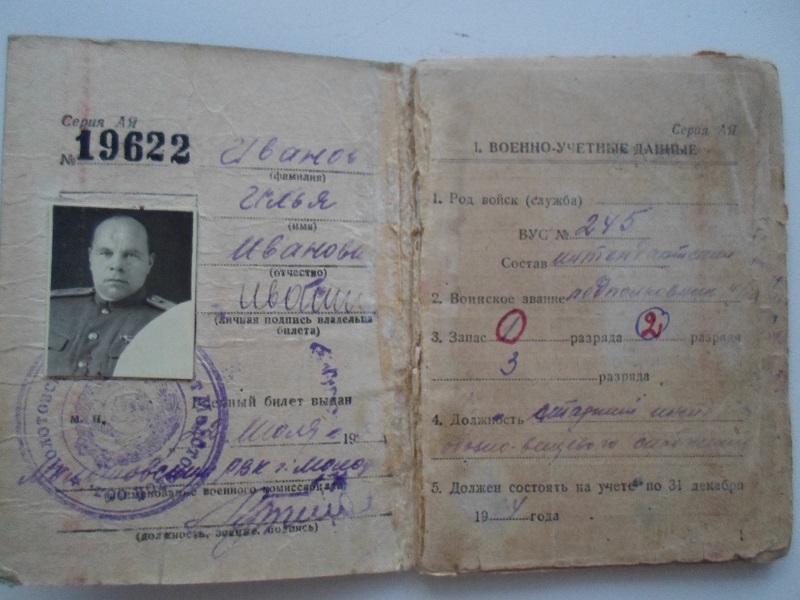 Серия АЯ
№ 19622
Иванов
(фамилия)
Илья
(имя)
Иванови
(отчество)
(личная подпись владельца
билета)
Военный билет выдан
М. П.
2 Июля 19
Молотовский РВК г. Моло
(наименование военного комиссариата)
(должность, звание, подпись)
Серия АЯ
I. ВОЕННО-УЧЕТНЫЕ ДАННЫЕ
1. Род войск (служба)
ВУС № 245
Состав интендантский
2. Воинское звание подполковник
3. Запас 1 разряда 2 разряда
3 разряда
4. Должность старший
вещевого снабжения
5. Должен состоять на учете по 31 декабря
19 года